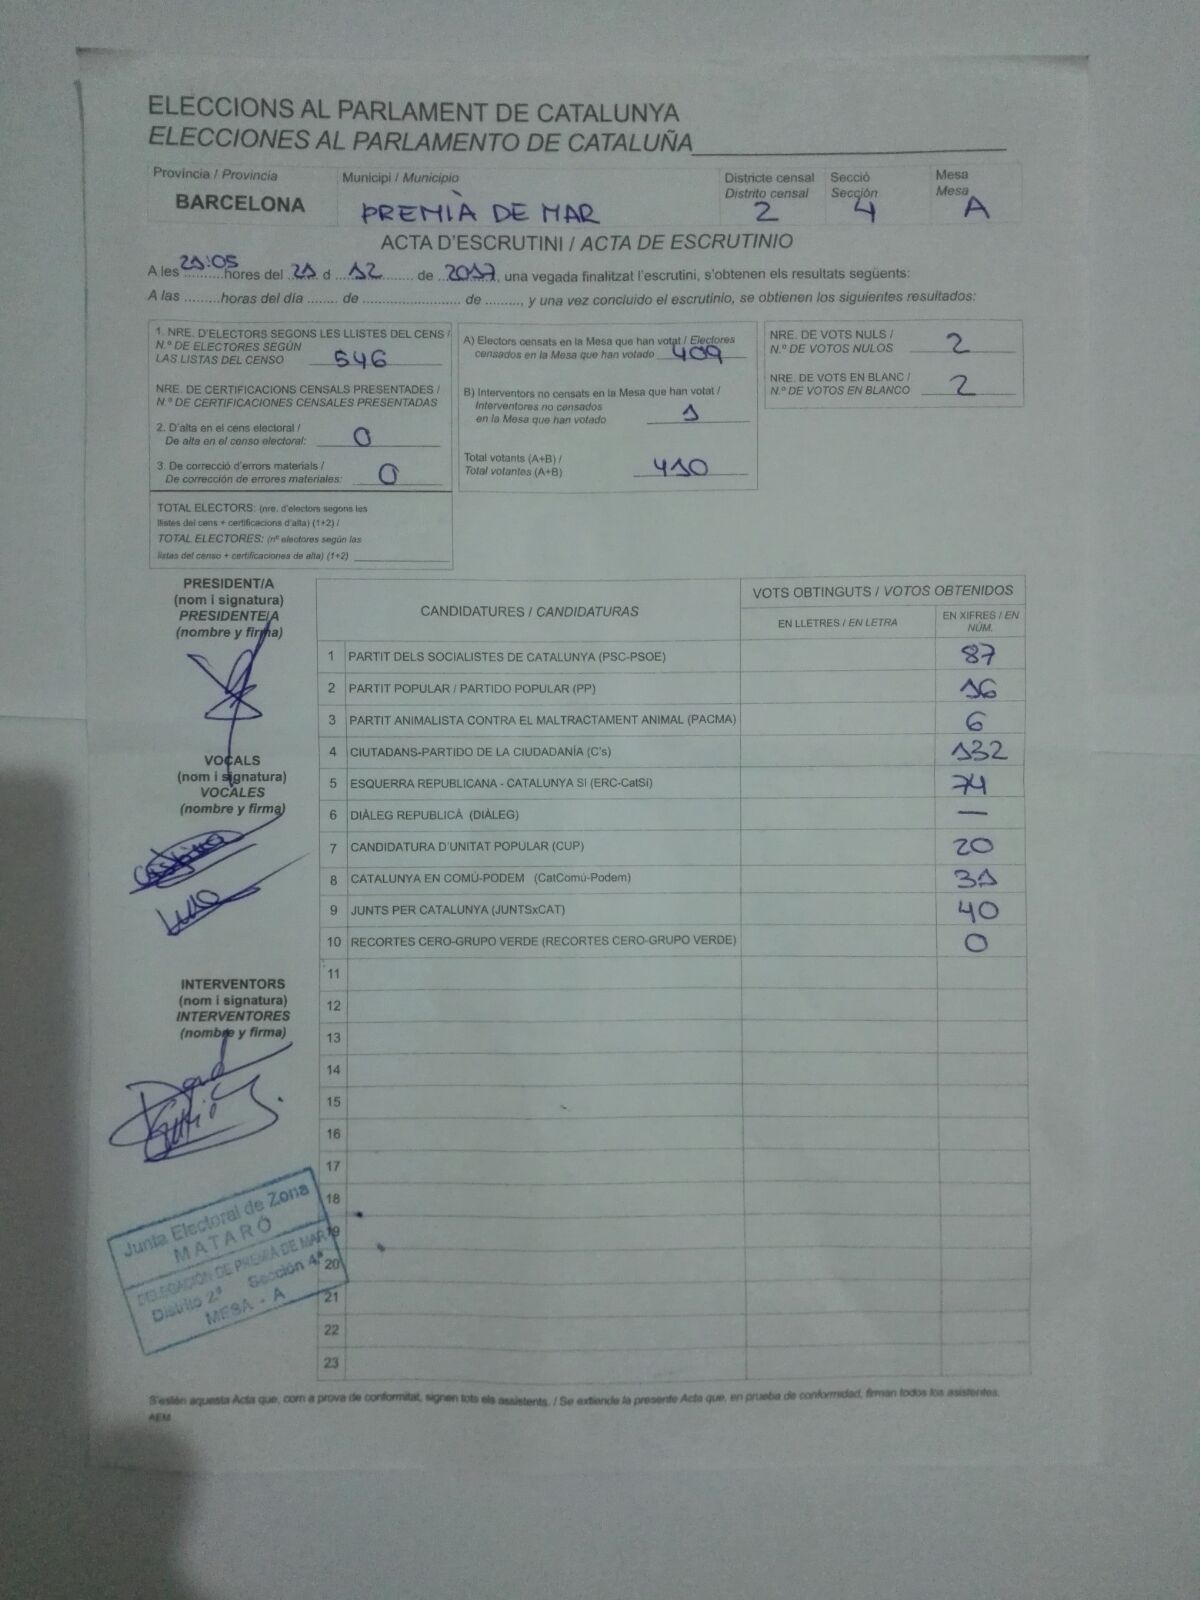 ELECCIONS AL PARLAMENT DE CATALUNYA
ELECCIONES AL PARLAMENTO DE CATALUÑA
Provincia / Provincia
BARCELONA
Municipi / Municipio
PREMIÀ DE MAR
Districte censal
Distrito censal
2
Secció
Sección
4
Mesa
Mesa
A
ACTA D'ESCRUTINI / ACTA DE ESCRUTINIO
A les 21:05 hores del 21 d 12 de 2017, una vegada finalitzat l'escrutini, s'obtenen els resultats següents:
A las .........horas del día ........ de ......................... de ........., y una vez concluido el escrutinio, se obtienen los siguientes resultados:
1. NRE. D'ELECTORS SEGONS LES LLISTES DEL CENS /
N.º DE ELECTORES SEGÚN
LAS LISTAS DEL CENSO 546
NRE. DE CERTIFICACIONS CENSALS PRESENTADES /
N.º DE CERTIFICACIONES CENSALES PRESENTADAS
2. D'alta en el cens electoral /
De alta en el censo electoral: 0
3. De correcció d'errors materials /
De corrección de errores materiales: 0
TOTAL ELECTORS: (nre. d'electors segons les
llistes del cens + certificacions d'alta) (1+2) /
TOTAL ELECTORES: (nº electores según las
listas del censo + certificaciones de alta) (1+2)
A) Electors censats en la Mesa que han votat / Electores
censados en la Mesa que han votado 409
B) Interventors no censats en la Mesa que han votat /
Interventores no censados
en la Mesa que han votado 1
Total votants (A+B) /
Total votantes (A+B) 410
NRE. DE VOTS NULS /
N.º DE VOTOS NULOS 2
NRE. DE VOTS EN BLANC /
N.º DE VOTOS EN BLANCO 2
PRESIDENT/A
(nom i signatura)
PRESIDENTE/A
(nombre y firma)
VOCALS
(nom i signatura)
VOCALES
(nombre y firma)
INTERVENTORS
(nom i signatura)
INTERVENTORES
(nombre y firma)
CANDIDATURES / CANDIDATURAS
VOTS OBTINGUTS / VOTOS OBTENIDOS
EN LLETRES / EN LETRA
EN XIFRES / EN
NÚM.
1 PARTIT DELS SOCIALISTES DE CATALUNYA (PSC-PSOE) 87
2 PARTIT POPULAR / PARTIDO POPULAR (PP) 16
3 PARTIT ANIMALISTA CONTRA EL MALTRACTAMENT ANIMAL (PACMA) 6
4 CIUTADANS-PARTIDO DE LA CIUDADANÍA (C's) 132
5 ESQUERRA REPUBLICANA - CATALUNYA SI (ERC-CatSí) 74
6 DIÀLEG REPUBLICÀ (DIÀLEG) —
7 CANDIDATURA D'UNITAT POPULAR (CUP) 20
8 CATALUNYA EN COMÚ-PODEM (CatComú-Podem) 31
9 JUNTS PER CATALUNYA (JUNTSxCAT) 40
10 RECORTES CERO-GRUPO VERDE (RECORTES CERO-GRUPO VERDE) 0
11
12
13
14
15
16
17
18
19
20
21
22
23
Junta Electoral de Zona
MATARÓ
DELEGACIÓN DE PREMIÀ DE MAR
Distrito 2ª Sección 4ª
MESA - A
S'estén aquesta Acta que, com a prova de conformitat, signen tots els assistents. / Se extiende la presente Acta que, en prueba de conformidad, firman todos los asistentes.
AEM